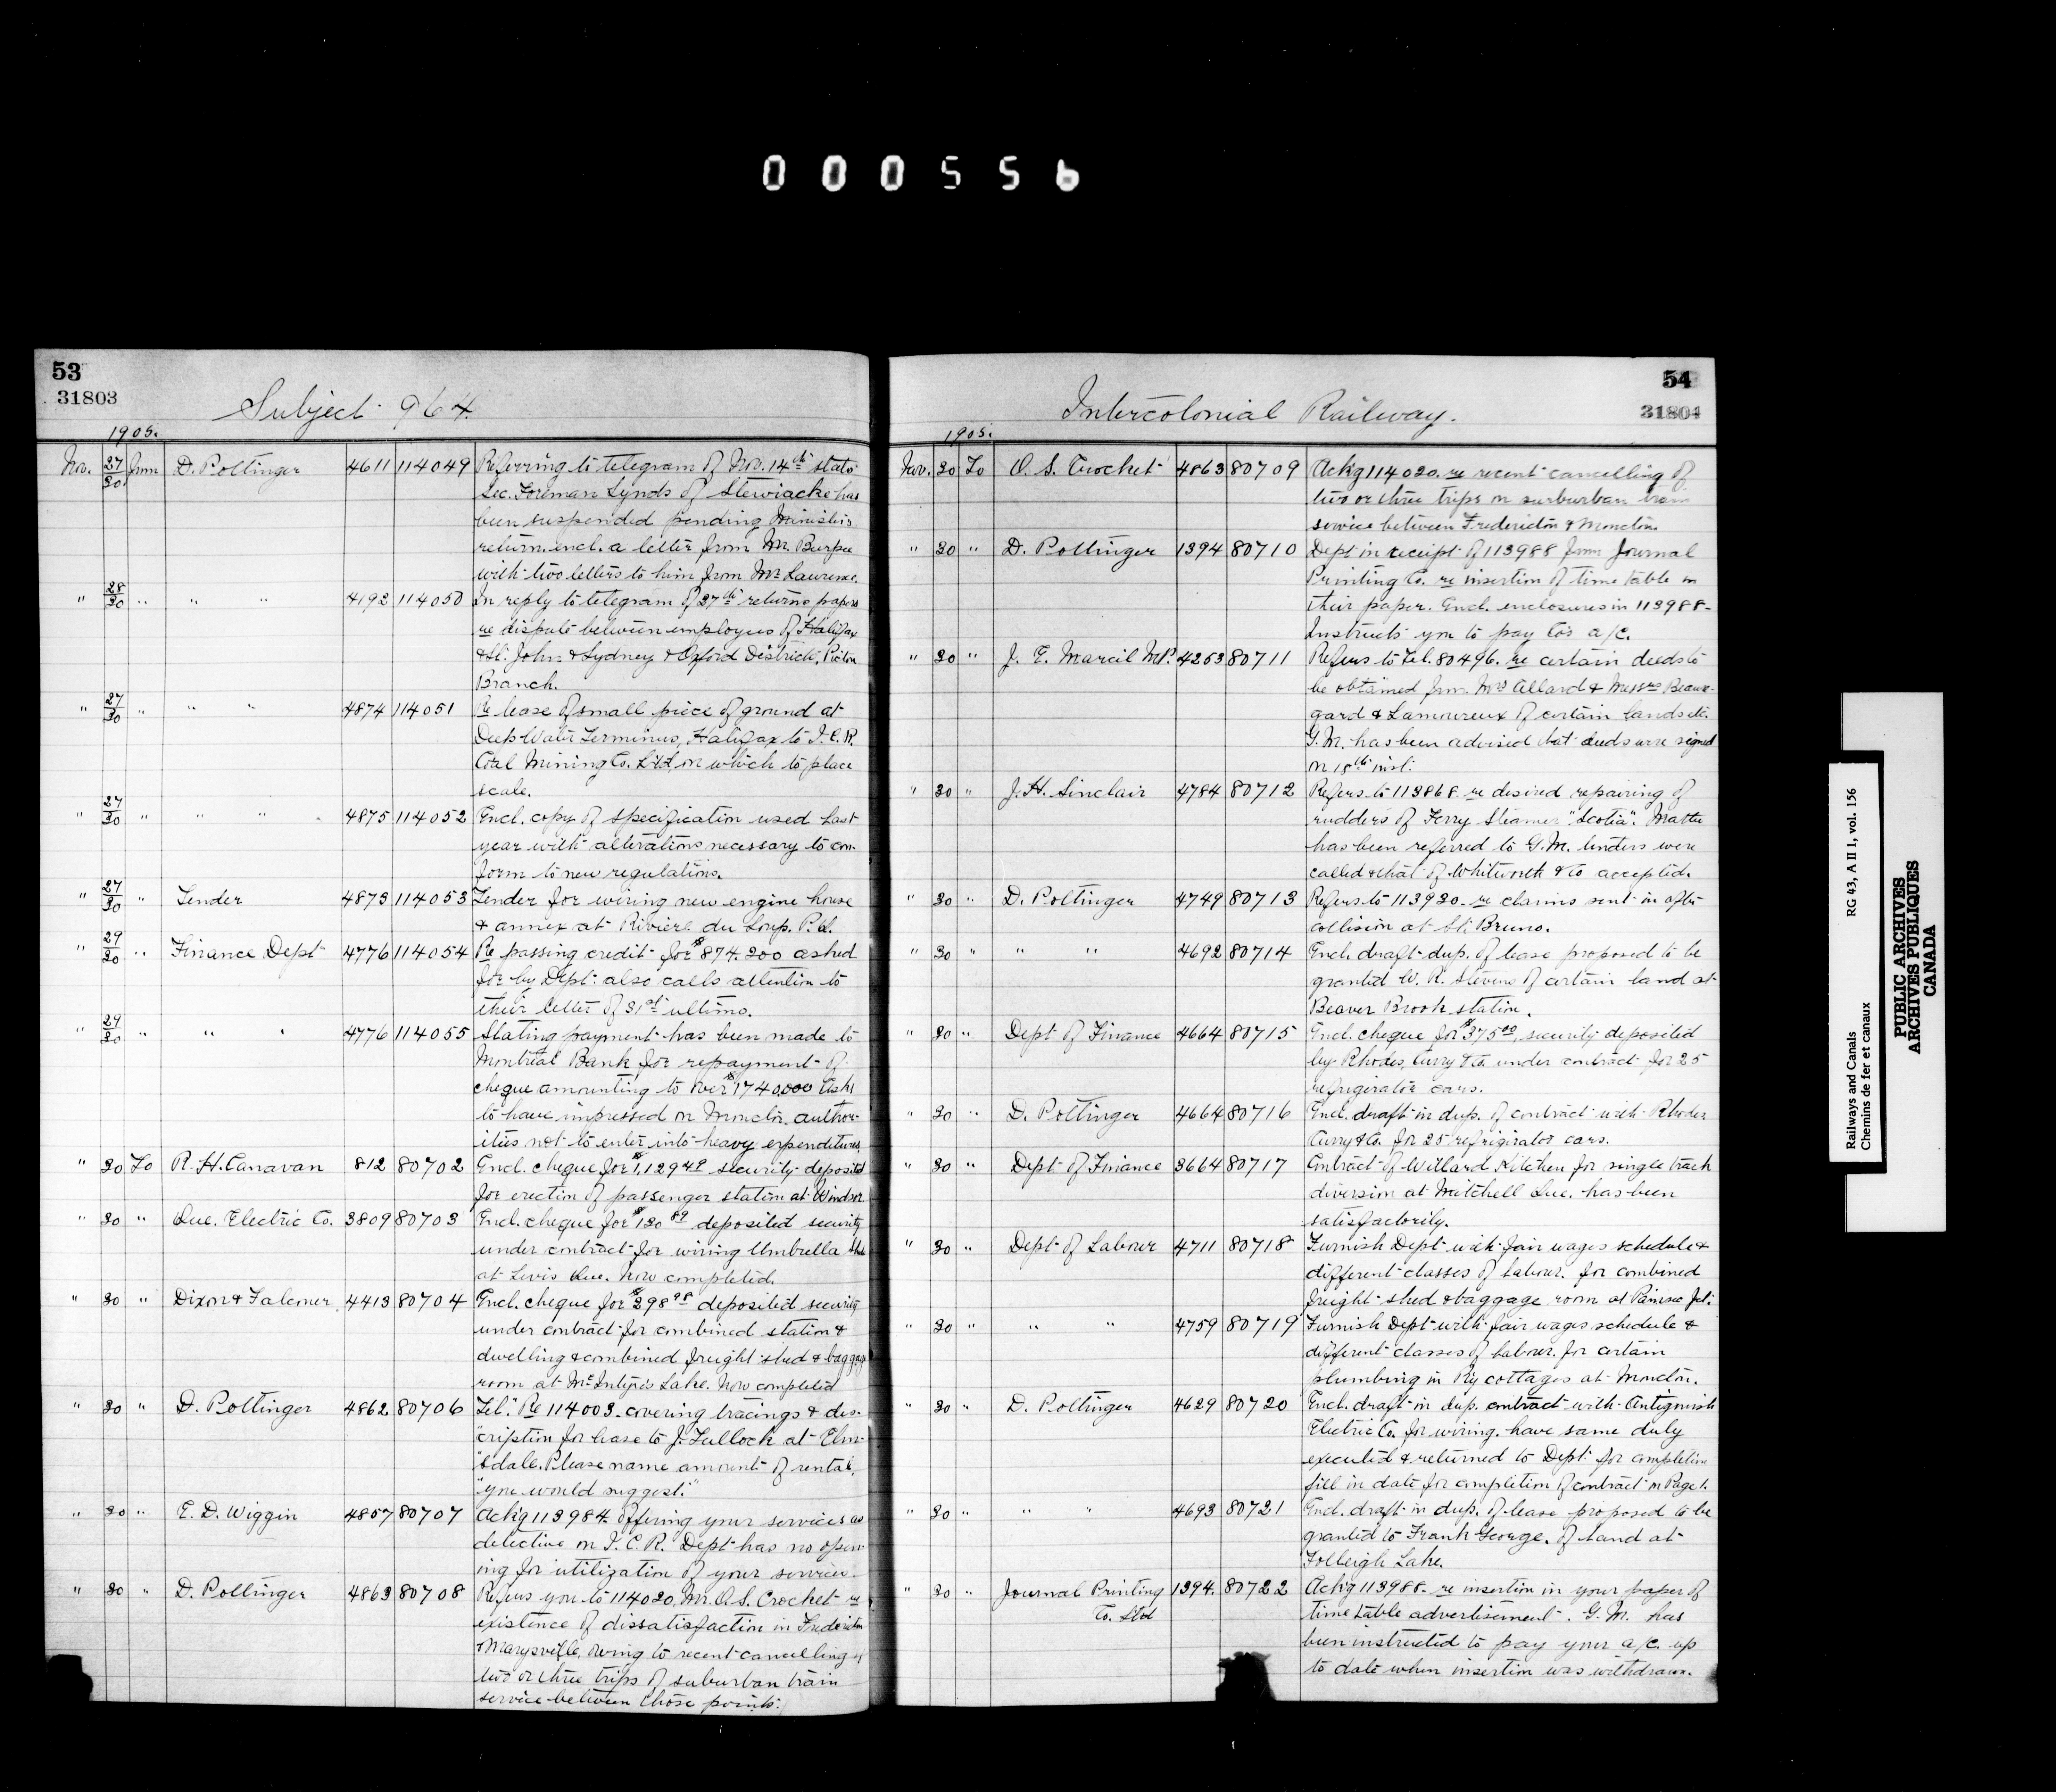 000556
53
31803
Subject 964.
1905.
Nov. 27/30 from D. Pottinger 4611 114049 Referring to telegram of Nov. 14th stats
Sec. Foreman Lynds of Stewiacke has
been suspended pending Ministers
return. encl. a letter from Mr. Burpee
with two letters to him from Mr Lawrence.
" 28/30 " " " 4192 114050 In reply to telegram of 27th returns papers
re dispute between employees of Halifax
& St. John & Sydney & Oxford District, Pictou
Branch.
" 27/30 " " " 4874 114051 Re lease of small piece of ground at
Deep Water Terminus, Halifax to I.C.R.
Coal Mining Co. Ltd, on which to place
scale.
" 27/30 " " " 4875 114052 Encl. copy of specification used last
year with alterations necessary to con-
form to new regulations.
" 27/30 " Tender 4873 114053 Tender for wiring new engine house
& annex at Riviere du Loup. P.Q.
" 29/30 " Finance Dept 4776 114054 Re passing credit for $874.200 asked
for by Dept. also calls attention to
their letter of 31st ultimo.
" 29/30 " " " 4776 114055 Stating payment has been made to
Montreal Bank for repayment of
cheque amounting to over $1740,000 Asks
to have impressed on Moncton author-
ities not to enter into heavy expenditures.
" 30 To R. H. Canavan 812 80702 Encl. cheque for $1,129 49 security deposited
for erection of passenger station at Windsor
" 30 " Que. Electric Co. 3809 80703 Encl. cheque for $130 89 deposited security
under contract for wiring Umbrella
at Levis Que. Now completed.
" 30 " Dixon & Falconer 4413 80704 Encl. cheque for $298 98 deposited security
under contract for combined station &
dwelling & combined freight shed & baggage
room at McIntyre's Lake. Now completed
" 30 " D. Pottinger 4862 80706 Tel. "Re 114003 covering tracings & des-
"cription for lease to J. Tullock at Elms-
"dale. Please name amount of rental,
"you would suggest."
" 30 " E. D. Wiggin 4857 80707 Ack'g 113984 offering your services as
detective on I.C.R. Dept has no open-
ing for utilization of your service
" 30 " D. Pottinger 4863 80708 Refers you to 114020, Mr. O.S. Crochet re
existence of dissatisfaction in Fredericton
& Marysville, owing to recent cancelling of
two or three trips of suburban train
service between those points.
54
31804
Intercolonial Railway.
1905.
Nov. 30 To O. S. Crochet 4863 80709 Ack'g 114020. re recent cancelling of
two or three trips on surburban train
service between Fredericton & Moncton.
" 30 " D. Pottinger 1394 80710 Dept in receipt of 113988 from Journal
Printing Co. re insertion of time table in
their paper. Encl. enclosures in 113988-
Instructs you to pay Co's a/c.
" 30 " J. E. Marcil M.P. 4253 80711 Refers to Tel. 80496. re certain deeds to
be obtained from Mrs Allard & Messrs Beaure-
gard & Lamoureux of certain lands etc.
G.M. has been advised that deeds were signed
on 18th inst.
" 30 " J. H. Sinclair 4784 80712 Refers to 113868 re desired repairing of
rudders of Ferry Steamer "Scotia". Matter
has been referred to G.M. tenders were
called & that of Whitworth & Co accepted.
" 30 " D. Pottinger 4749 80713 Refers to 113920 re claims sent in after
collision at St. Bruno.
" 30 " " " 4692 80714 Encl. draft dup. of lease proposed to be
granted W. R. Stevens of certain land at
Beaver Brook station.
" 30 " Dept of Finance 4664 80715 Encl. cheque for $375 00, security deposited
by Rhodes, Curry & Co under contract for 25
refrigirator cars.
" 30 " D. Pottinger 4664 80716 Encl. draft in dup. of contract with Rhodes
Curry & Co. for 25 refrigirator cars.
" 30 " Dept of Finance 3664 80717 Contract of Willard Kitchen for single track
diversion at Mitchell Que. has been
satisfactorily.
" 30 " Dept of Labour 4711 80718 Furnish Dept with fair wages schedule &
different classes of labour. for combined
freight shed & baggage room at Painsec Jct.
" 30 " " " 4759 80719 Furnish Dept with fair wages schedule &
different classes of labour. for certain
plumbing in Ry cottages at Moncton.
" 30 " D. Pottinger 4629 80720 Encl. draft in dup. contract with Antigonish
Electric Co. for wiring. have same duly
executed & returned to Dept. for completion
fill in date for completion of contract on Page 1.
" 30 " " " 4693 80721 Encl. draft in dup. of lease proposed to be
granted to Frank George, of land at
Folleigh Lake.
" 30 " Journal Printing 1394. 80722 Ack'g 113988 re insertion in your paper of
Co. Ltd time table advertisement. G.M. has
been instructed to pay your a/c. up
to date when insertion was withdrawn.
Railways and Canals RG 43, A II 1, vol. 156
Chemins de fer et canaux
PUBLIC ARCHIVES
ARCHIVES PUBLIQUES
CANADA